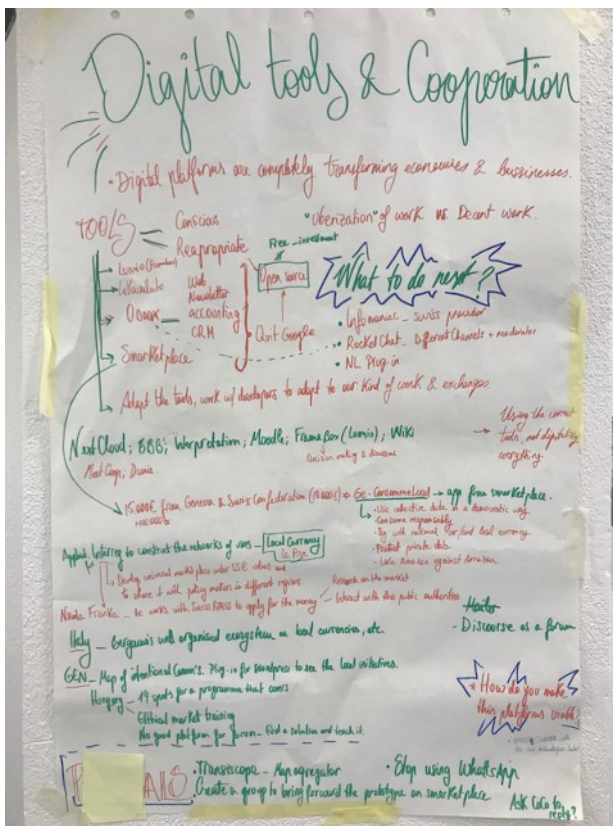 Digital tools & Cooperation
• Digital platforms are completely transforming economies & bussinesses.
TOOLS
Conscious
Reapropriate
"Uberization" of work vs Decent work.
Free - investment
Open source
Quit Google
What to do next?
Odoo
Web
Newsletter
accounting
CRM
Smarketplace
• Infomaniac - Swiss provider
• RocketChat - Different Channels + moderator
• NL Plug-in
Adapt the tools, work w/ developers to adapt to our kind of work & exchanges.
NextCloud; BBB; Interpretation; Moodle; FramaBox (Lumio); Wiki
Decision making & discussion
→ Using the correct
tools, not digitalizing
everything.
15.000€ from Geneva & Swiss Confederation
Ge-ConsommeLocal → app from smarketplace.
• Use collective data in a democratic way
• Consume responsably
• Pay with national and/or local currency
• Protect private data
• Local Amazon against Amazon
Interreg to construct the networks of users - Local Currency
Develop universal market place under SSE values and
to share it with policy makers in different regions.
Research on the market
Interact with the public authorities
He works with Swiss RIPESS to apply for the money
Italy - Bergamo's well organised ecosystem on local currencies, etc.
• Discourse as a forum
GEN - Map of intentional Comm's. Plug-in for wordpress to see the local initiatives.
Hungary - 14 spots for a programme that covers
Ethical market training
No good platform for forum - Find a solution and teach it.
* How do you make
this platforms viable?
• Transiscope - Map agregator
• Stop using WhatsApp
Create a group to bring forward the prototype on smarketplace
Ask CoCo to
reply?